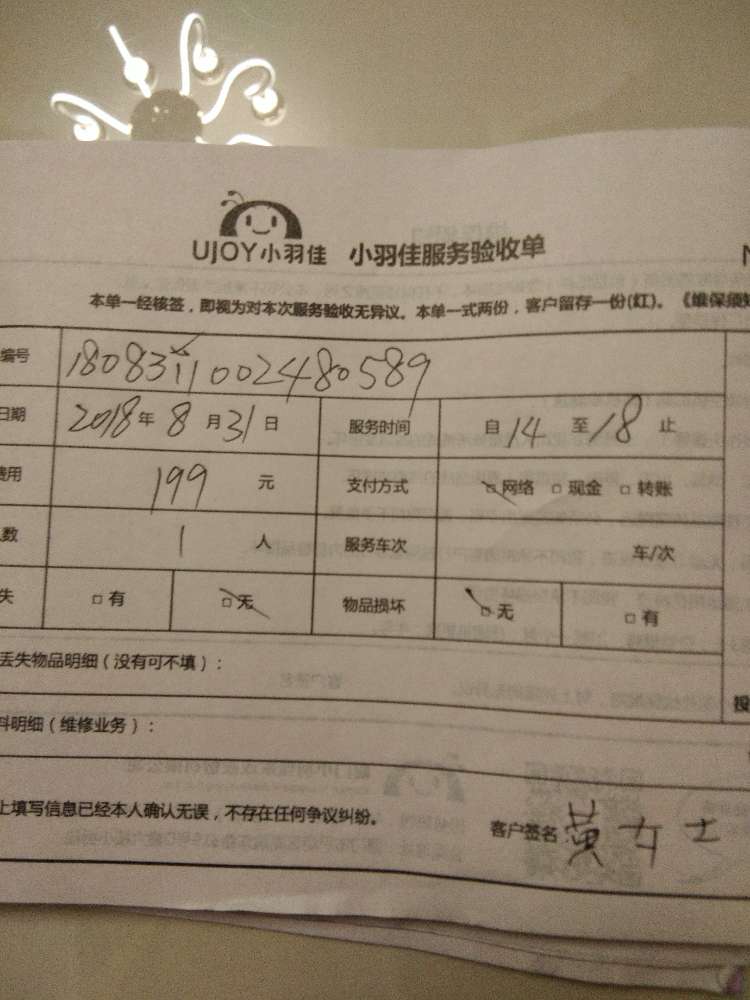 UJOY小羽佳 小羽佳服务验收单
本单一经核签，即视为对本次服务验收无异议。本单一式两份，客户留存一份(红)。《维保须知
编号 1808311002480589
日期 2018年 8月31日 服务时间 自14至18止
费用 199 元 支付方式 □网络 □现金 □转账
数 1 人 服务车次 车/次
失 □有 □无 物品损坏 □无 □有
丢失物品明细（没有可不填）：
料明细（维修业务）：
上填写信息已经本人确认无误，不存在任何争议纠纷。
客户签名：黄女士